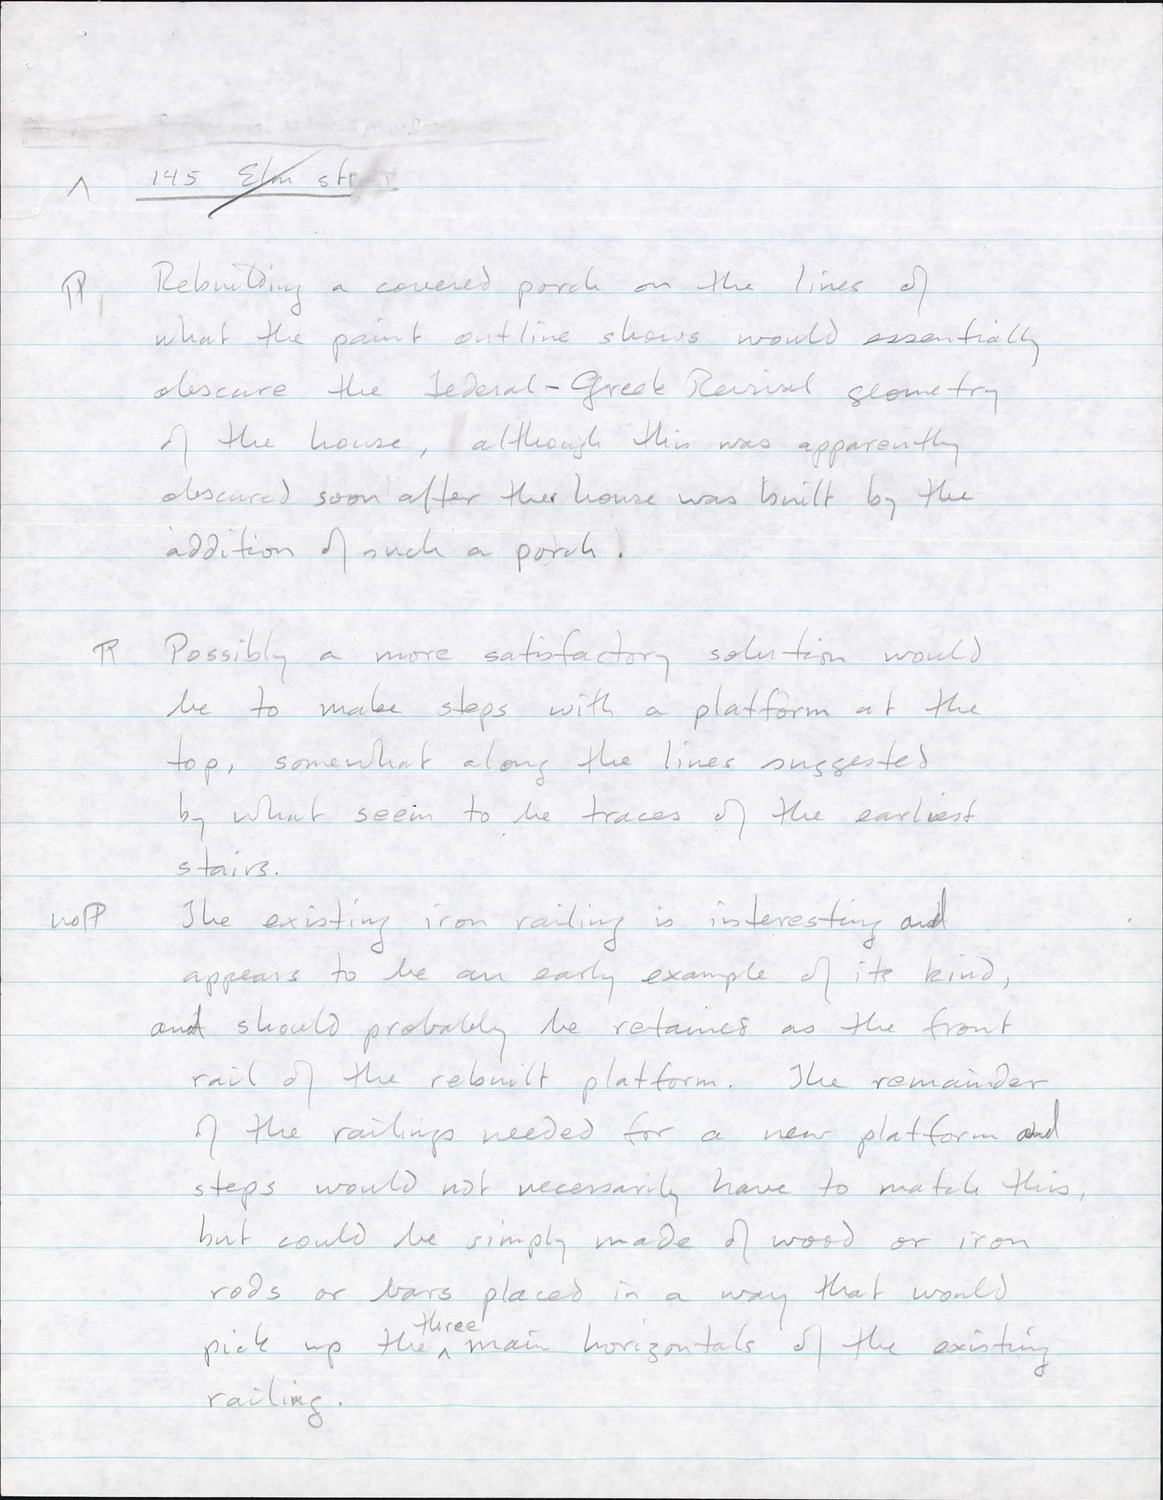 ^ 145 Elm str
¶ Rebuilding a covered porch on the lines of
what the paint outline shows would essentially
obscure the Federal-Greek Revival geometry
of the house, although this was apparently
obscured soon after the house was built by the
addition of such a porch.
¶ Possibly a more satisfactory solution would
be to make steps with a platform at the
top, somewhat along the lines suggested
by what seem to be traces of the earliest
stairs.
no ¶ The existing iron railing is interesting and
appears to be an early example of its kind,
and should probably be retained as the front
rail of the rebuilt platform. The remainder
of the railings needed for a new platform and
steps would not necessarily have to match this,
but could be simply made of wood or iron
rods or bars placed in a way that would
three
pick up the ^ main horizontals of the existing
railing.